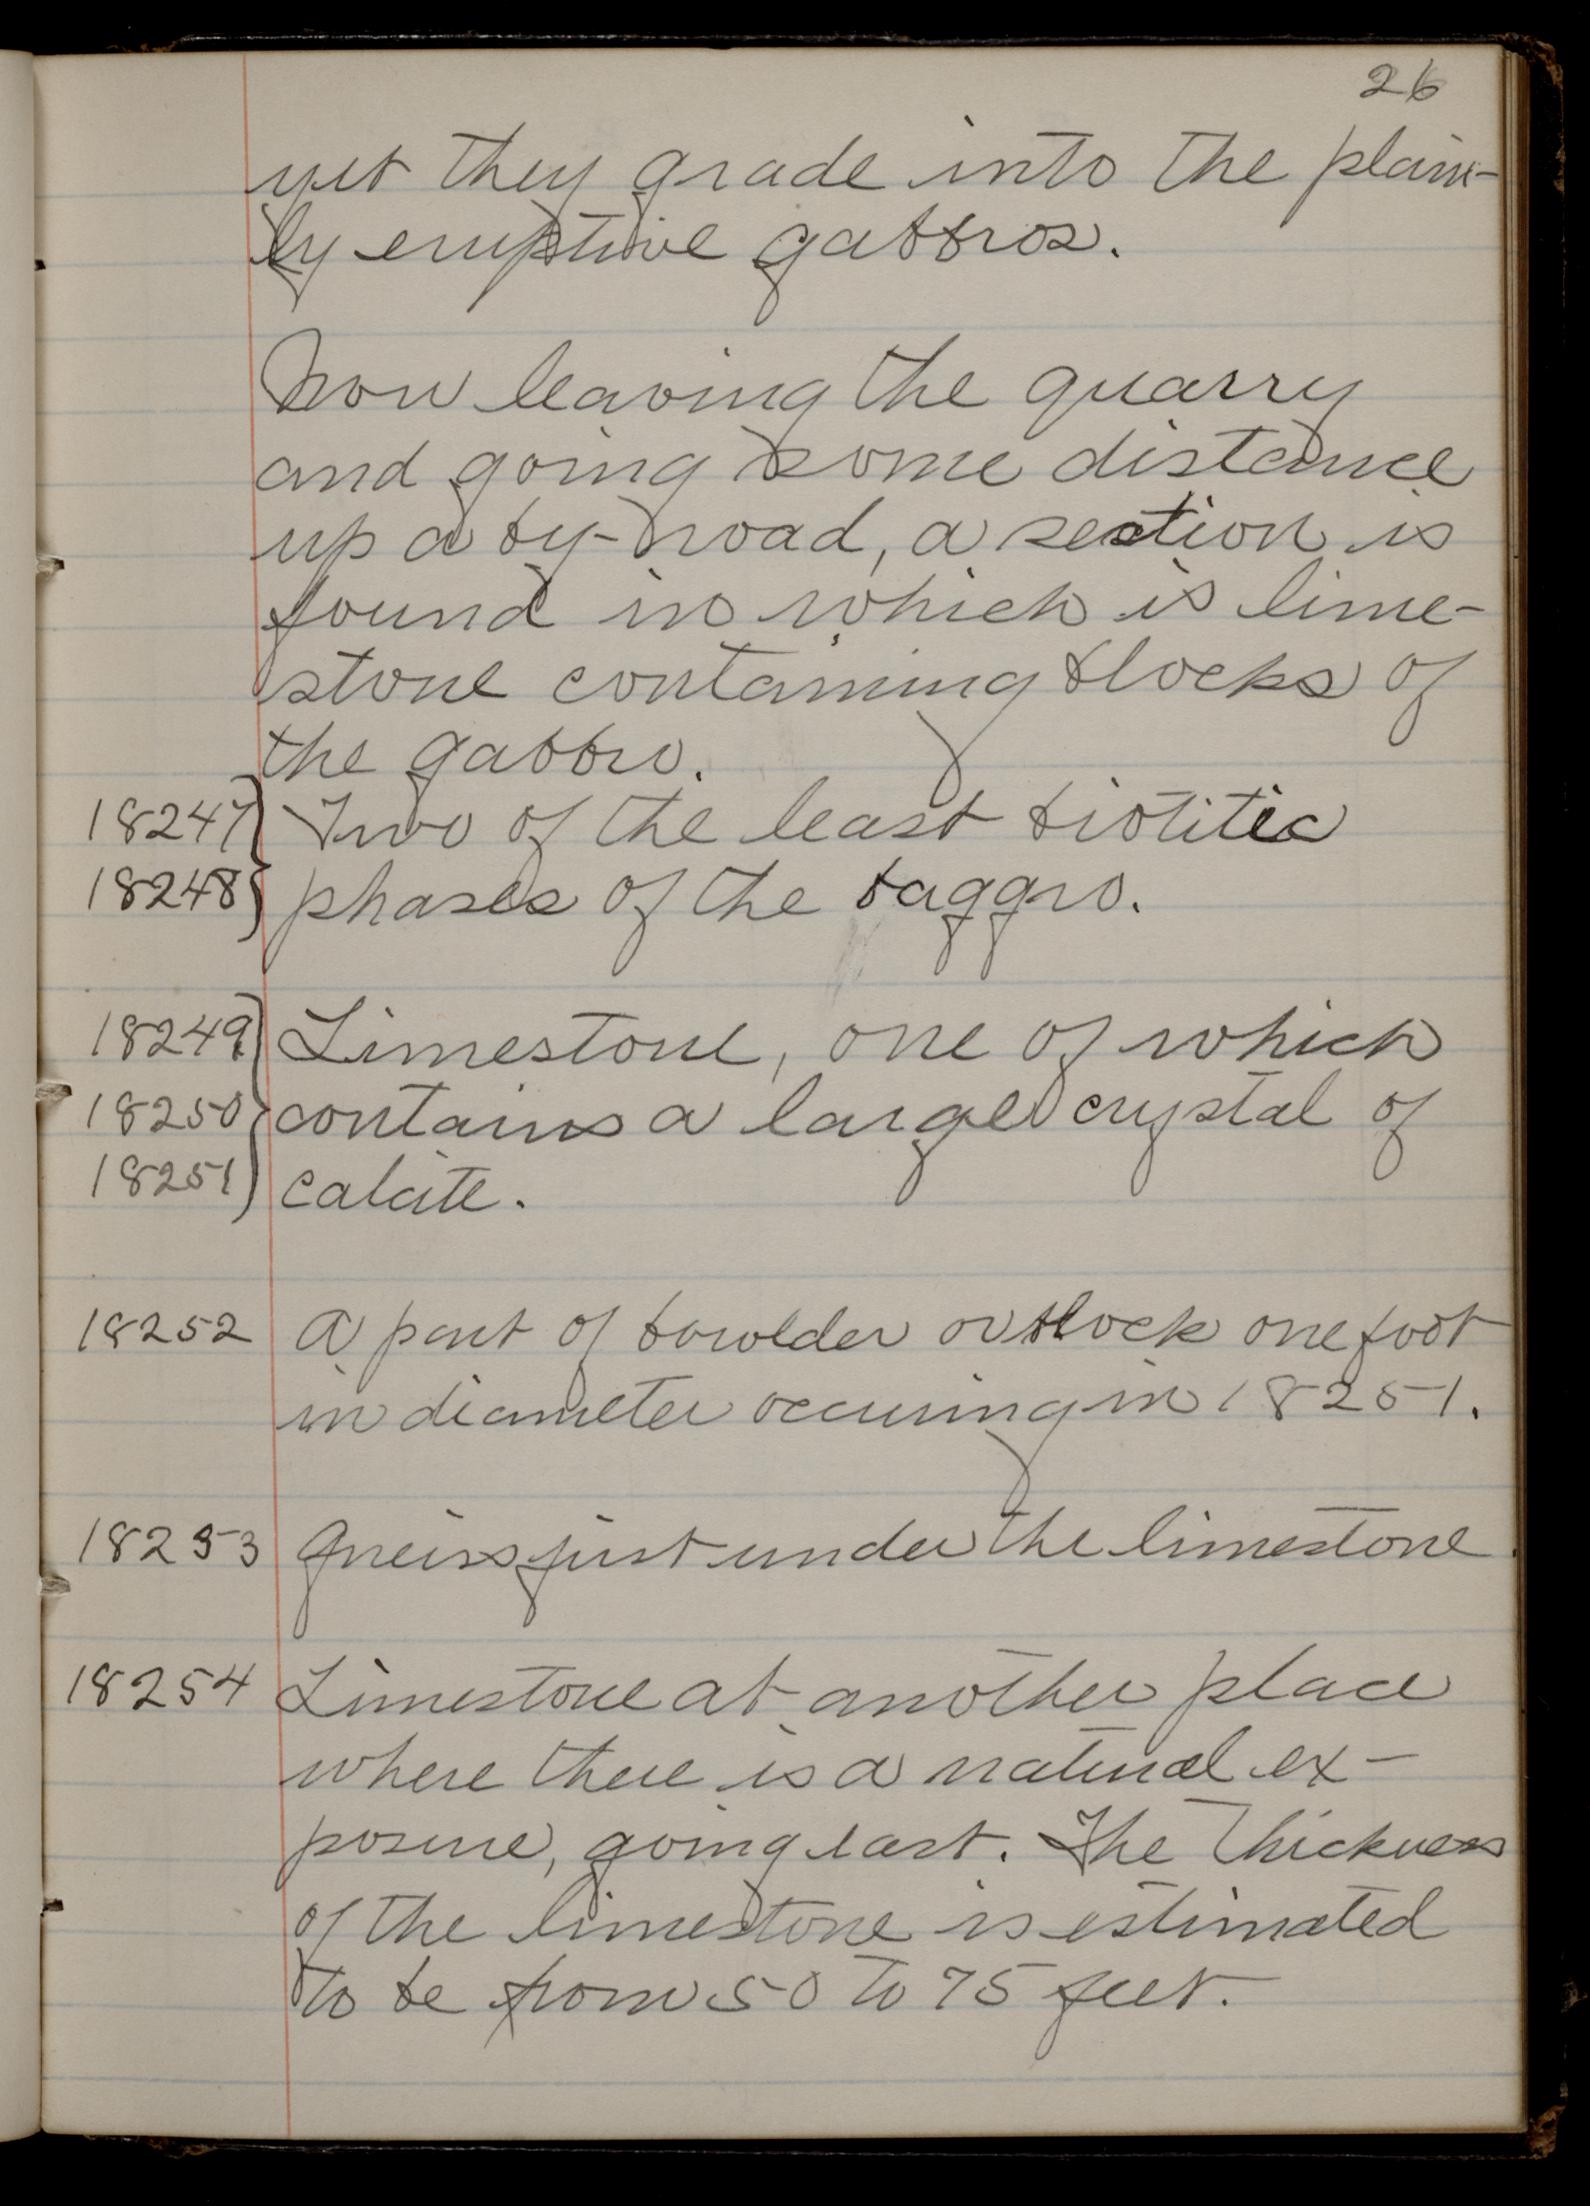 26
yet they grade into the plain-
ly eruptive gabbros.
Now leaving the quarry
and going some distance
up a by-road, a section is
found in which is lime-
stone containing blocks of
the gabbro.
18247} Two of the least biotitic
18248} phases of the baggro.
18249} Limestone, one of which
18250} contains a large crystal of
18251} calcite.
18252 A part of bowlder or block one foot
in diameter occuring in 18251.
18253 Gneiss just under the limestone.
18254 Limestone at another place
where there is a natural ex-
posure, going east. The thickness
of the limestone is estimated
to be from 50 to 75 feet.